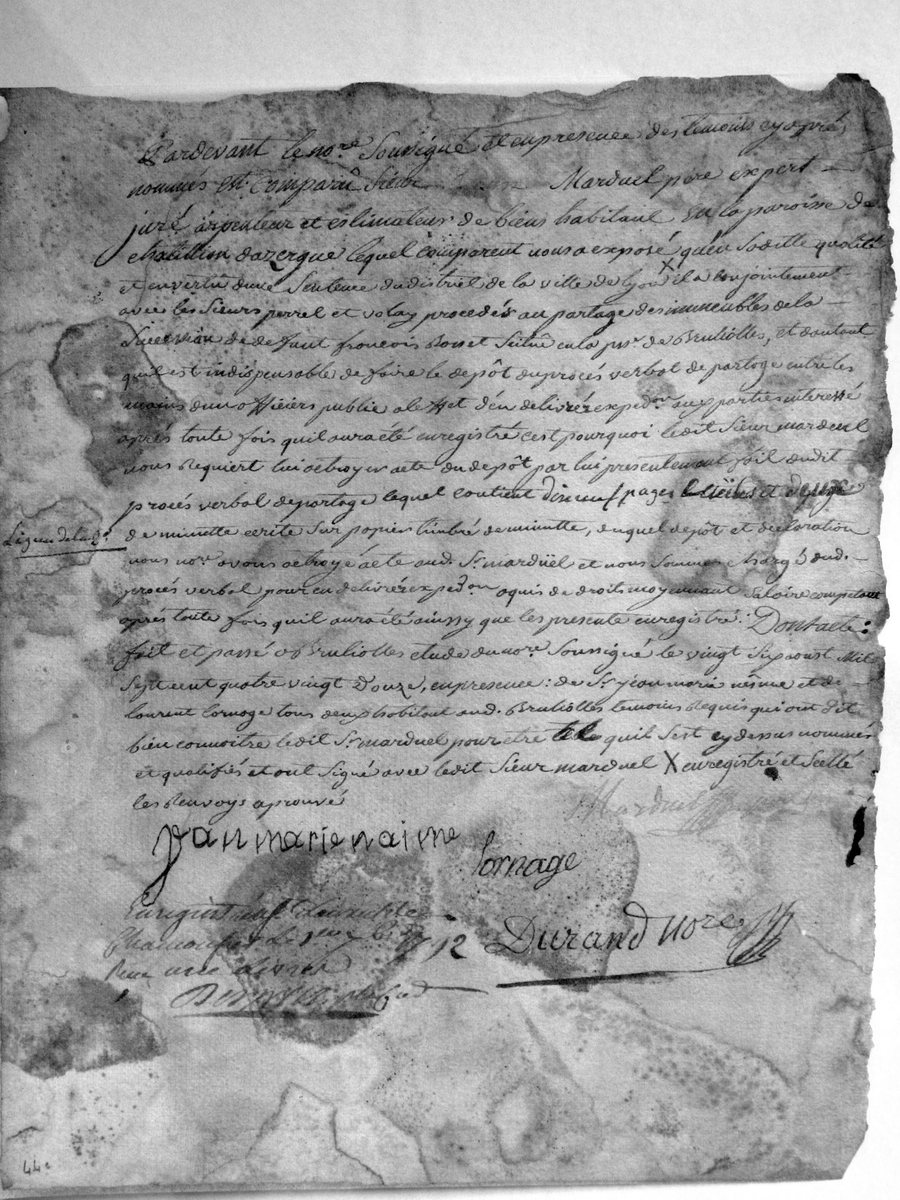 Pardevant le nore Soussigné et en presence des temoins cy aprés
nommés est comparû Sieur Marduel pere expert
juré arpenteur et estimateur de biens habitant en la paroisse de
chatillion dazergue lequel comparent nous a exposé qu'en Saditte qualité
et en vertu dune Sentence du distriel de la ville de lyon X il a conjointement
avec les Sieurs perrel et volay procedés au partage des immeubles de la
Suc̄ession de deffunt francois Situé en la psse de Bruliolles, et dautant
quil est indispensable de faire le depôt du procés verbal de partage entre les
mains dun officiers public a leffet d'en delivrér expedon aux parties interessé
aprés toute fois quil aura été enregistré cest pourquoi ledit Sieur marduel
nous Requiert lui octroyer acte du depôt par lui presentement fait dudit
procés verbal de partage lequel contient dixneuf pages et
Ligne de la
de minutte ecrite Sur papier timbré de minutte, duquel depôt et declaration
nous nore avons octroyé acte aud. Sr marduel et nous Sommes chargé dud.
procés verbal pour en delivrér expedon a qui de droits moyennant Salaire competant
aprés toute fois quil aura été ainssy que les presente enregistré : Dont acte :
fait et passé a Brulliolles etude du nore Soussigné le vingt Six aoust Mil
Sept cent quatre vingt Douze, en presence : de Sr jean marie nesme et de
laurent Cornage tous deux habitant aud. Brulliolles temoins Requis qui ont dit
bien connoitre ledit Sr marduel pour etre tel quil Sest cy dessus nommés
et qualifiés et ont Signé avec ledit Sieur marduel X enregistré et Scellé
les Renvoys aprouvé
Marduel
Jean marie naime
Cornage
Le 1792
Durand Nore
Reçu une Livre
44